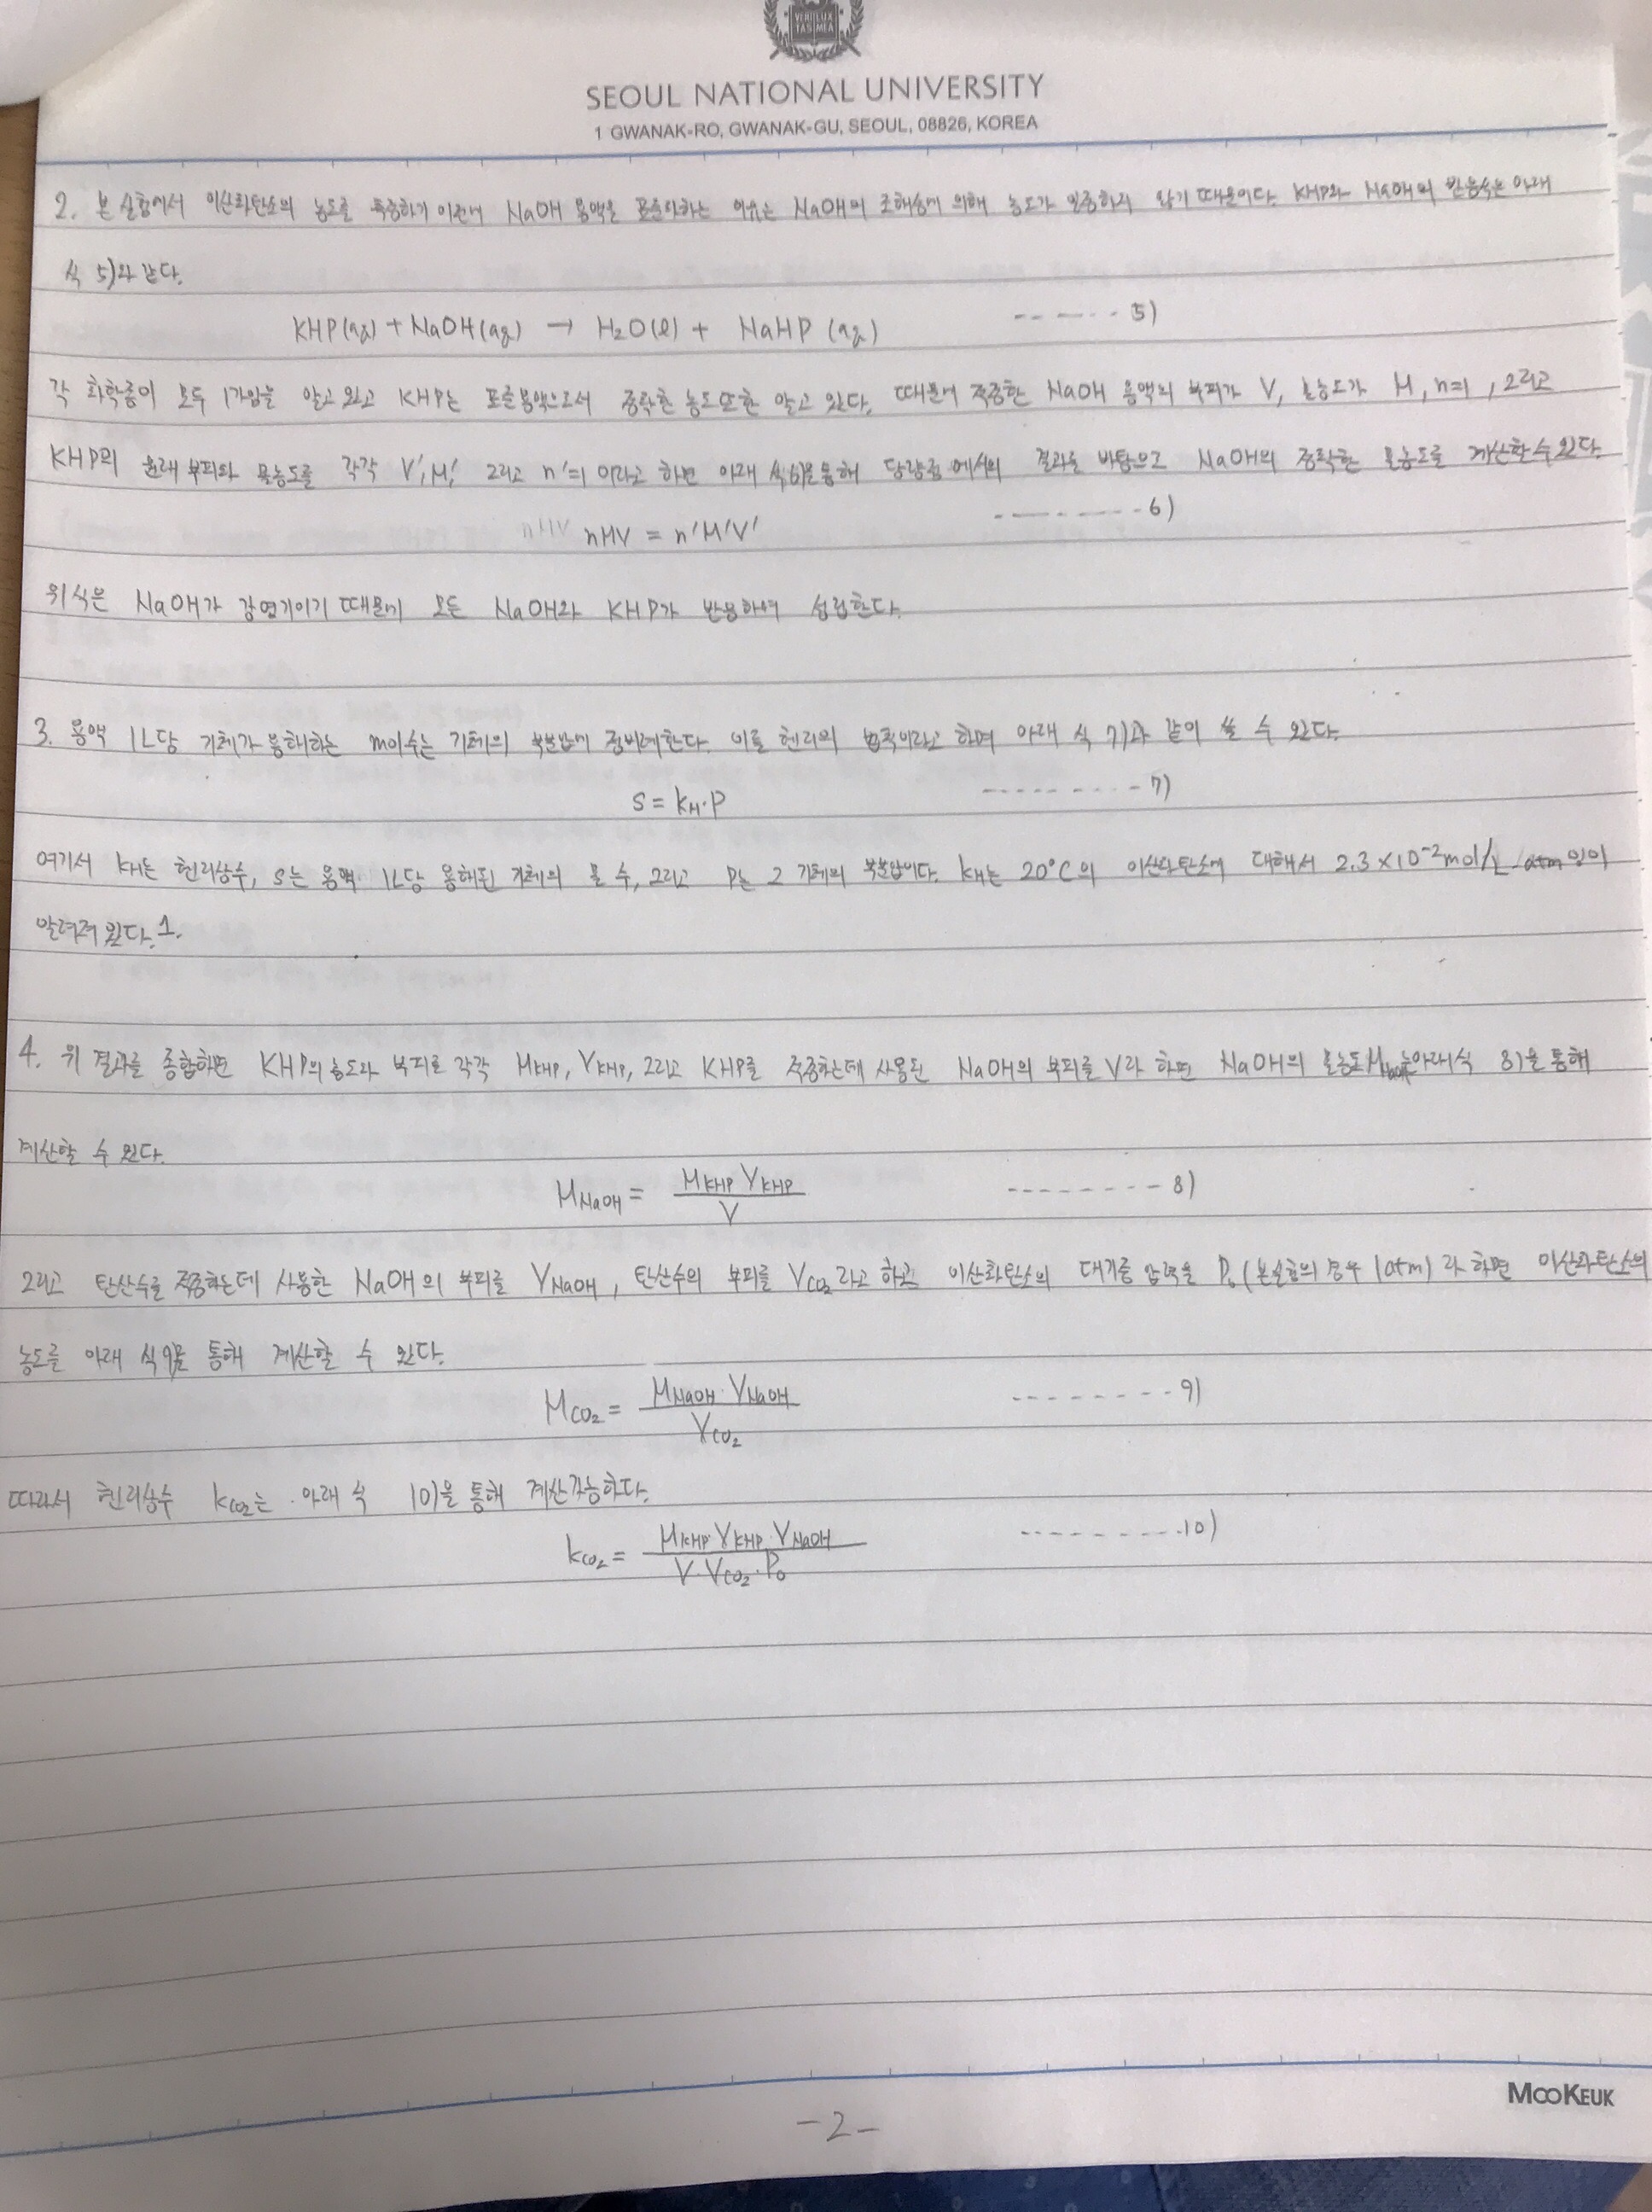 VERI LUX TAS MEA
SEOUL NATIONAL UNIVERSITY
1 GWANAK-RO, GWANAK-GU, SEOUL, 08826, KOREA
2. 본 실험에서 이산화탄소의 농도를 측정하기 이전에 NaOH 용액을 표준화하는 이유는 NaOH의 조해성에 의해 농도가 일정하지 않기 때문이다. KHP와 NaOH의 반응식은 아래
식 5)와 같다.
KHP(aq) + NaOH(aq) → H₂O(l) + NaHP (aq) ------- 5)
각 화학종이 모두 1가임을 알고 있고 KHP는 표준용액으로서 정확한 농도 또한 알고 있다. 때문에 적정한 NaOH 용액의 부피가 V, 몰농도가 M, n=1, 그리고
KHP의 원래 부피와 몰농도를 각각 V', M', 그리고 n'=1 이라고 하면 아래 식 6)을 통해 당량점에서의 결과를 바탕으로 NaOH의 정확한 몰농도를 계산할 수 있다.
nMV = n'M'V' --------- 6)
위 식은 NaOH가 강염기이기 때문에 모든 NaOH와 KHP가 반응하여 성립한다.
3. 용액 1L당 기체가 용해하는 mol수는 기체의 부분압에 정비례한다. 이를 헨리의 법칙이라고 하며 아래 식 7)과 같이 쓸 수 있다.
S = k_H·P --------- 7)
여기서 k_H는 헨리상수, S는 용액 1L당 용해된 기체의 몰 수, 그리고 P는 그 기체의 부분압이다. k_H는 20°C의 이산화탄소에 대해서 2.3×10⁻²mol/L·atm임이
알려져 있다.1.
4. 위 결과를 종합하면 KHP의 농도와 부피를 각각 M_KHP, V_KHP, 그리고 KHP를 적정하는데 사용된 NaOH의 부피를 V라 하면 NaOH의 몰농도 M_NaOH는 아래 식 8)을 통해
계산할 수 있다.
M_NaOH = M_KHP V_KHP / V -------- 8)
그리고 탄산수를 적정하는데 사용한 NaOH의 부피를 V_NaOH, 탄산수의 부피를 V_CO₂ 라고 하고 이산화탄소의 대기중 압력을 P₀ (본실험의 경우 1atm) 라 하면 이산화탄소의
농도를 아래 식 9)를 통해 계산할 수 있다.
M_CO₂ = M_NaOH·V_NaOH / V_CO₂ -------- 9)
따라서 헨리상수 k_CO₂는 아래 식 10)을 통해 계산가능하다.
k_CO₂ = M_KHP·V_KHP·V_NaOH / V·V_CO₂·P₀ --------- 10)
MOOKEUK
-2-